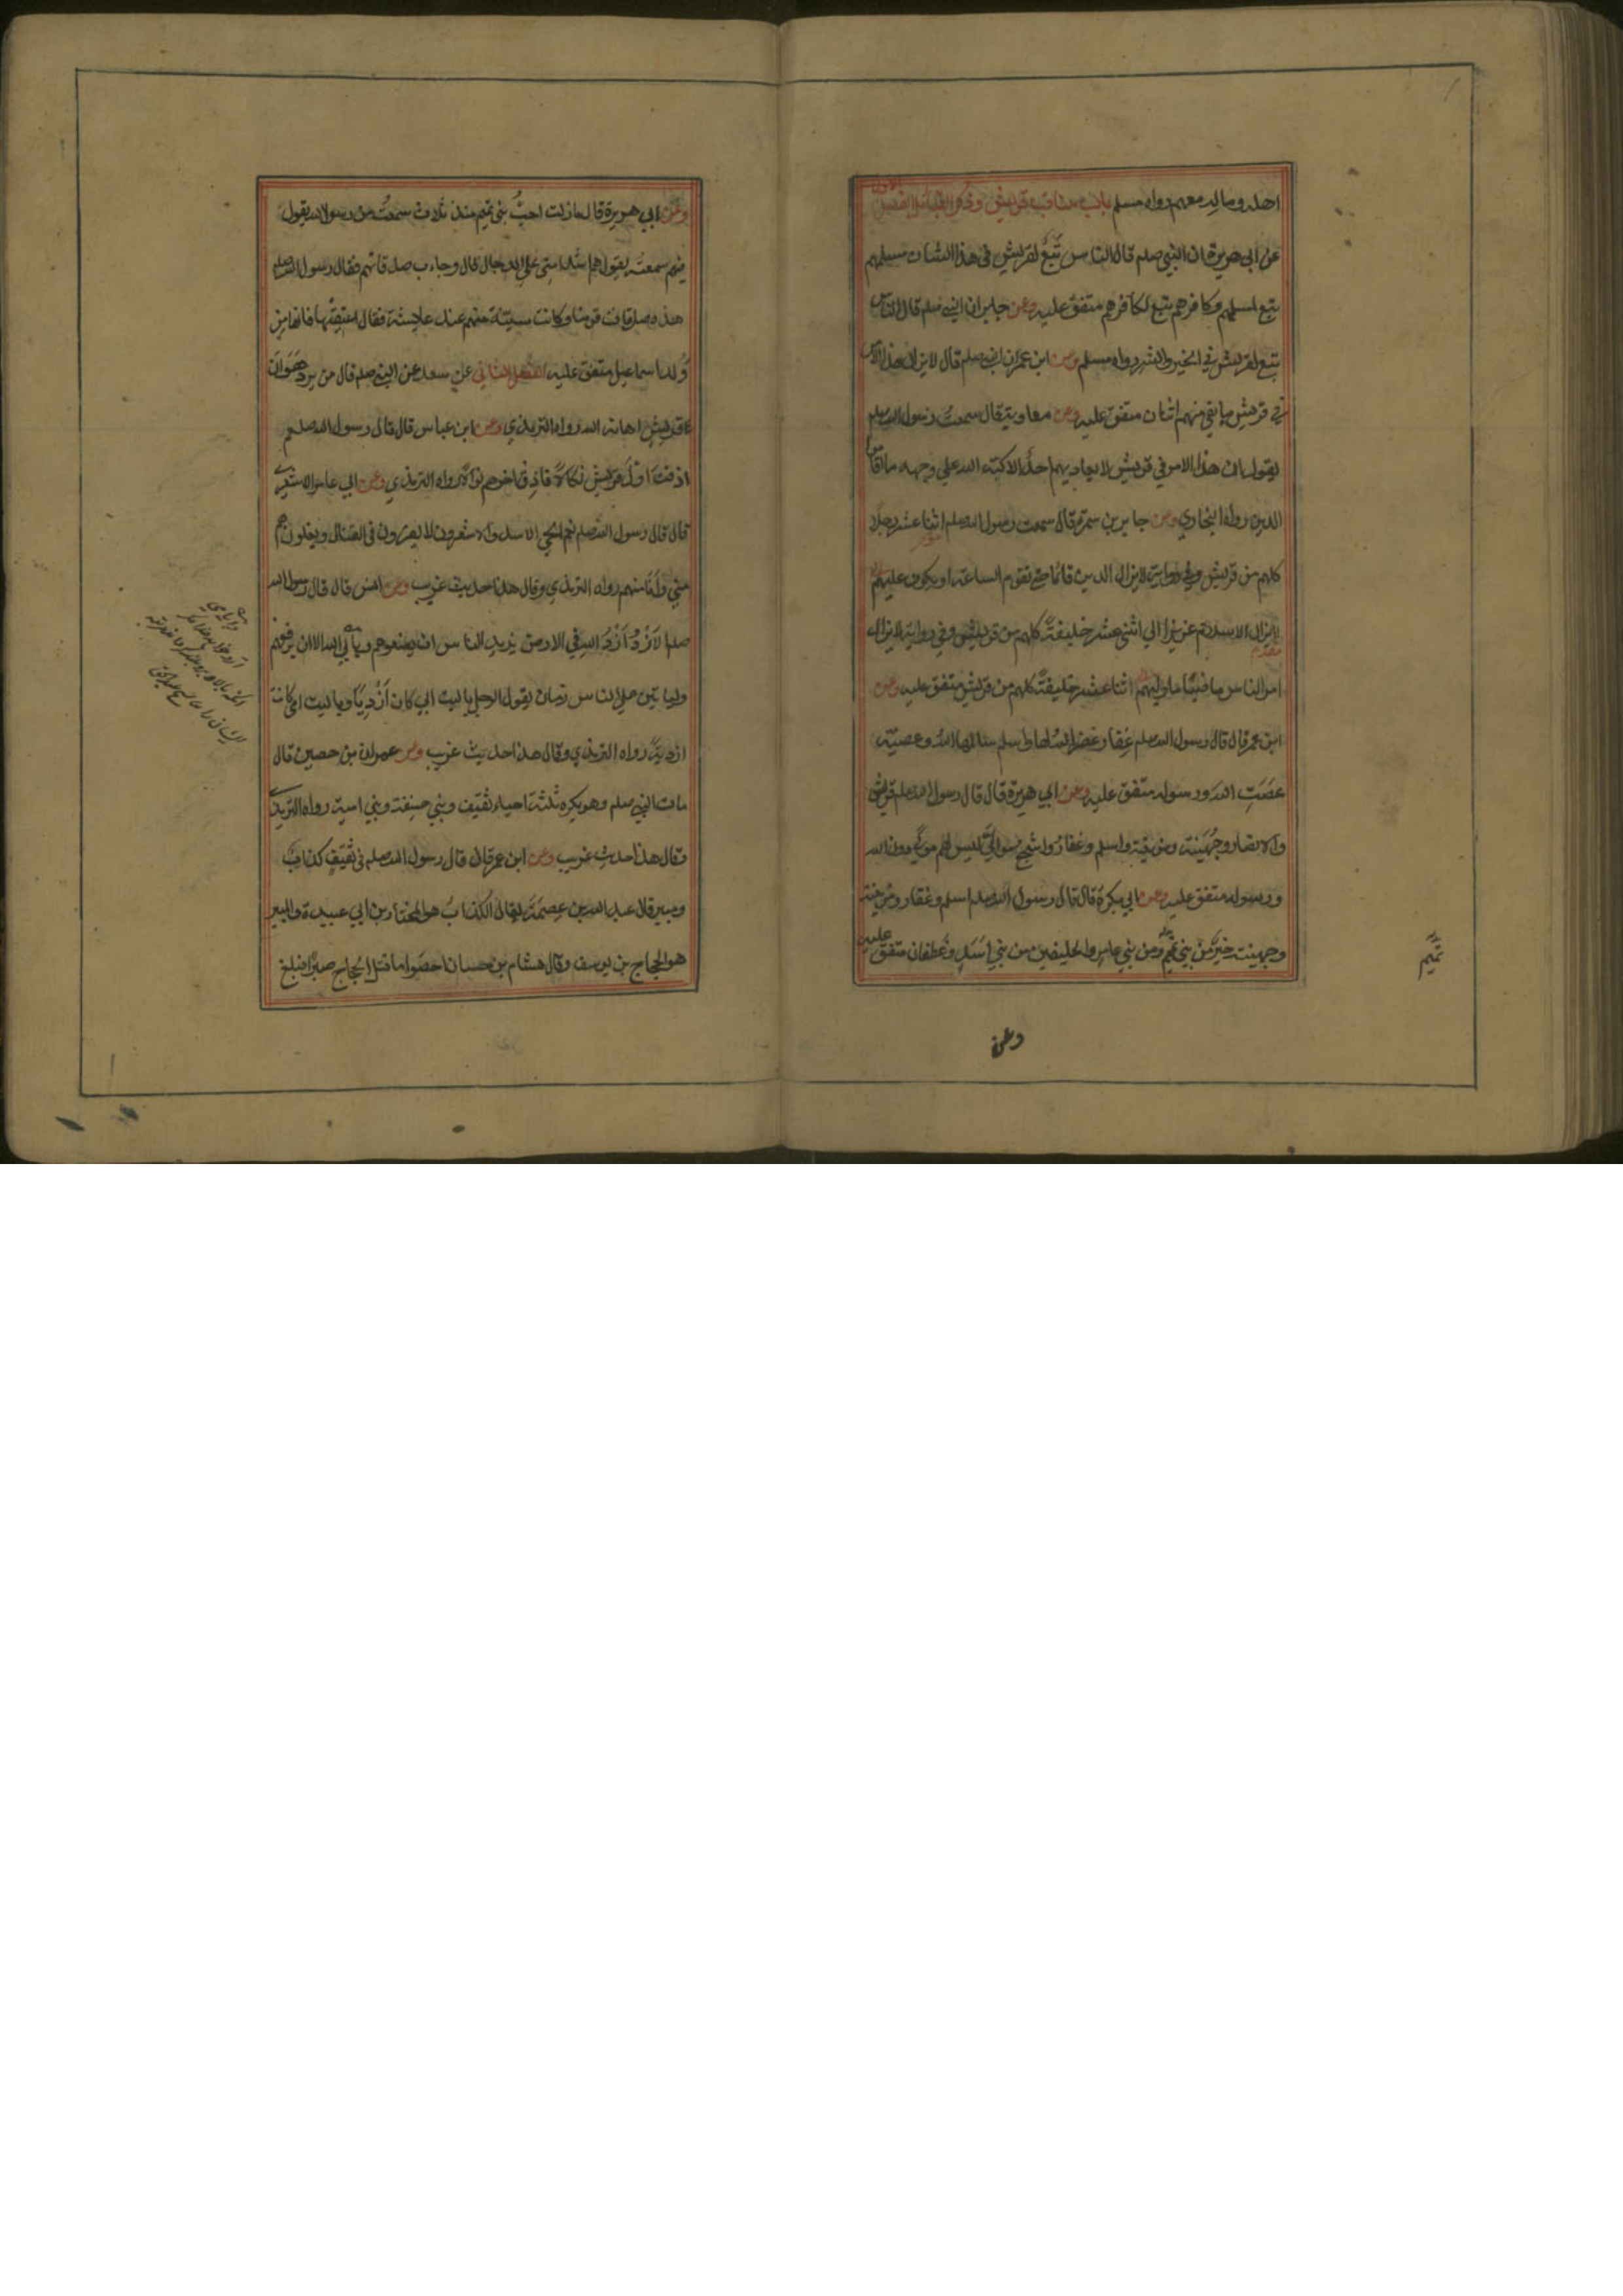 احد وماله معهم رواه مسلم باب مناقب قريش وذكر القبائل الفصل الاول
عن ابي هريرة ان النبي صلم قال الناس تَبَعٌ لقريش في هذا الشان مسلمهم
تبع لمسلمهم وكافرهم تبع لكافرهم متفق عليه وعن جابر ان النبي صلم قال الناس
تبع لقريش في الخير والشر رواه مسلم وعن ابن عمر ان النبي صلم قال لا يزال هذا الامر
في قريش ما بقي منهم اثنان متفق عليه وعن معاوية قال سمعت رسول الله صلم
يقول ان هذا الامر في قريش لا يعاديهم احدٌ الا كبّه الله علي وجهه ما اقاموا
الدين رواه البخاري وعن جابر بن سمرة قال سمعت رسول الله صلم اثنا عشر رجلا
كلهم من قريش وفي رواية لا يزال الدين قائما حتي تقوم الساعة او يكون عليهم
لا يزال الاسلام عزيزا الي اثني عشر خليفةً كلهم من قريش وفي رواية لا يزال
امر الناس ماضيًا ما وليهم اثنا عشر خليفةً كلهم من قريش متفق عليه وعن
ابن عمر قال قال رسول الله صلم غِفار غفر الله لها واسلم سالمها الله وعصيّة
عصَتِ الله ورسوله متفق عليه وعن ابي هريرة قال قال رسول الله صلم قريش
والانصار وجُهَينة ومزينة واسلم وغفار واشجع موالِيَّ ليس لهم مولًي دون الله
ورسوله متفق عليه وعن ابي بكرة قال قال رسول الله صلم اسلم وغفار ومزينة
وجهينة خيرٌ من بني تميم ومن بني عامر والحليفين من بني اسَدٍ وغَطفان متفق عليه
تميم
وعن
وعن ابي هريرة قال ما زلت احبُّ بني تميم منذ ثلاث سمعتُ من رسول الله يقول
فيهم سمعته يقول هم اشد امتي علي الدجال قال وجاءت صدقاتهم فقال رسول الله صلم
هذه صدقات قومنا وكانت سبيّة منهم عند عايشة فقال اعتقيها فانها من
وُلد اسماعيل متفق عليه الفصل الثاني عن سعد عن النبي صلم قال من يرد هَوَان
قريشٍ اهانه الله رواه الترمذي وعن ابن عباس قال قال رسول الله صلم
اذقتَ اوّلَ قريش نكالاً فاذِق اخرهم نوالا رواه الترمذي وعن ابي عامر الاشعري
قال قال رسول الله صلم نعم الحي الاسد والاشعرون لا يفرون في القتال ولا يغلون هم
مني وانَا منهم رواه الترمذي وقال هذا حديث غريب وعن انس قال قال رسول الله
صلم الازدُ اَزدُ الله في الارض يريد الناس ان يضعوهم ويأبي الله الا ان يرفعهم
ولياتين علي الناس زمان يقول الرجل يا ليت ابي كان اَزْدِيّاً ويا ليت امي كانت
ازديةً رواه الترمذي وقال هذا حديث غريب وعن عمران بن حصين قال
مات النبي صلم وهو يكره ثلثة احياء ثقيف وبني حنيفة وبني امية رواه الترمذي
وقال هذا حديث غريب وعن ابن عمر قال قال رسول الله صلم في ثقيفٍ كذابٌ
ومبير قال عبد الله بن عِصمَة يقال الكذابُ هو المختار بن ابي عبيدة والمبير
هو الحجاج بن يوسف وقال هشام بن حسان احصَوا ما قتل الحجاج صبرًا فبلغ